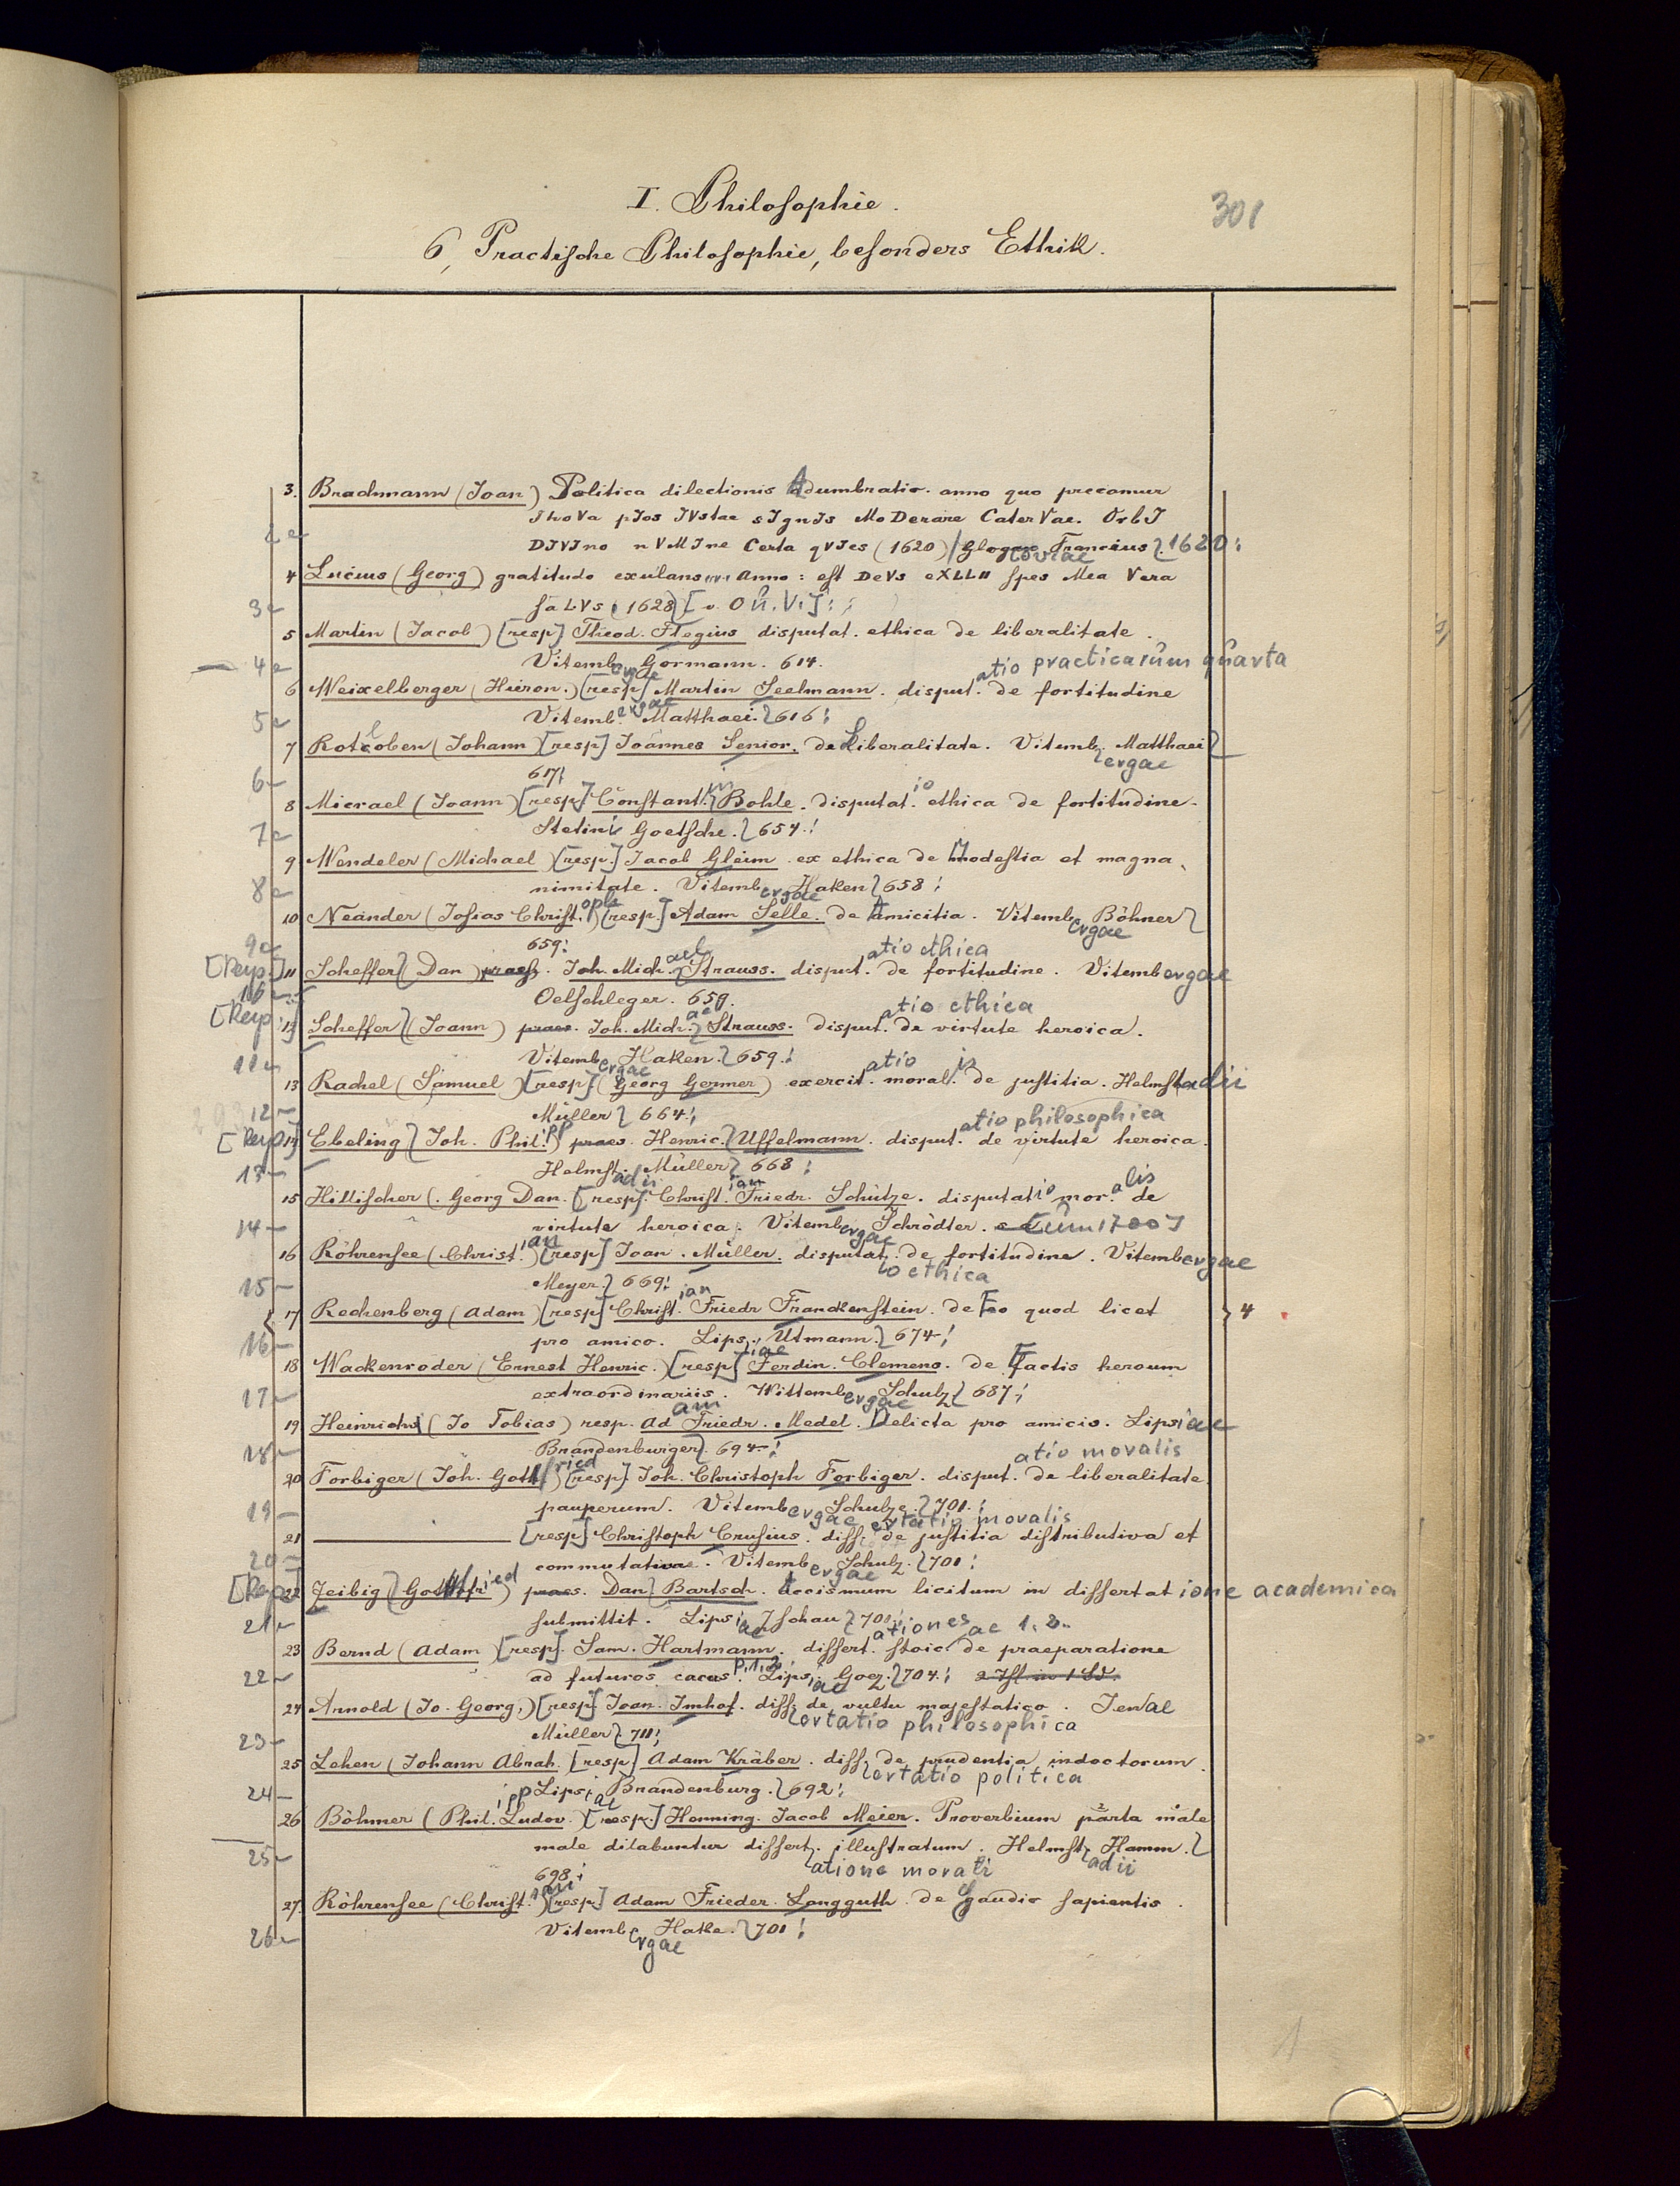 I. Philosophie.
301
6, Practische Philosophie, besonders Ethik.
3. Brachmann (Joan) Politica dilectionis Adumbratio. anno quo precamur
JhoVa pIos JVstae sIgnIs MoDerare CaterVae. OrbI
DIVIno nVMIne Certa qVIes (1620) / Glogoviae Francius 1620:
4 Lucius (Georg) gratitudo exulans Anno: est DeVs
spes Mea Vera
3 saLVs (1628) [o. O u. V.]:
5 Martin (Jacob) [resp] Theod. Flegius disputat. ethica de liberalitate.
4 Vitembergae Gormann. 614.
6 Weixelberger (Hieron.) [resp] Martin Seelmann. disputatio practicarum quarta de fortitudine
5 Vitembergae Matthaei. 616:
7 Rotloben (Johann) [resp] Joannes Senior. de Liberalitate. Vitembergae Matthaei
6 617:
8 Micrael (Joann) [resp] Constantin Bohle. disputatio ethica de fortitudine.
7 Stetini Goetsche. 654.:
9 Wendeler (Michael) [resp.] Jacob Gleim ex ethica de Modestia et magna-
8 nimitate. Vitembergae Haken 658:
10 Neander (Josias Christoph) [resp.] Adam Selle. de Amicitia. Vitembergae Böhner
9 659:
[Resp.] 11 Scheffer (Dan) praes. Joh. Michael Strauss. disputatio ethica de fortitudine. Vitembergae
10 Oelschleger. 659.
[Resp.] 12 Scheffer (Joann) praes. Joh. Michael Strauss. disputatio ethica de virtute heroica.
11 Vitembergae Haken. 659.:
13 Rachel (Samuel) [resp] (Georg Germer) exercitatio moralis de justitia. Helmstadii
12 Müller 664.:
[Resp] 14 Ebeling (Joh. Philipp) praes. Henric. Uffelmann. disputatio philosophica de virtute heroica.
13 Helmstadii Müller 668:
15 Hillischer (Georg Dan. [resp]. Christian Friedr. Schütze. disputatio moralis de
14 virtute heroica. Vitembergae Schrödter. [um 1700]
16 Röhrensee (Christian) [resp] Joan. Müller. disputatio ethica de fortitudine. Vitembergae
15 Meyer. 669:
17 Rechenberg (Adam) [resp] Christian Friedr Franckenstein. de Eo quod licet 4
16 pro amico. Lipsiae Utmann. 674:
18 Wackenroder (Ernest Henric.) [resp] Ferdin. Clemens. de Factis heroum
17 extraordinariis. Wittembergae Schulz 687:
19 Heinrichs (Jo Tobias) resp. Adam Friedr. Medel. Delicta pro amicis. Lipsiae
18 Brandenburger. 694:
20 Forbiger (Joh. Gottfried) [resp]. Joh. Christoph Forbiger. disputatio moralis de liberalitate
19 pauperum. Vitembergae Schulze. 701.:
21 —— [resp] Christoph Crusius. dissertatio moralis de justitia distributiva et
20 commutativa. Vitembergae Schulz. 701:
[Resp] 22 Zeibig (Gottfried) praes. Dan Bartsch. Accismum licitum in dissertatione academica
21 submittit. Lipsiae Tschau 701:
23 Bernd (Adam) [resp]. Sam. Hartmann. dissertationes stoicae 1. 2. de praeparatione
22 ad futuros casus. P. 1, 2. Lipsiae Goez. 704:
24 Arnold (Jo. Georg.) [resp] Joan. Imhof. dissertatio philosophica de vultu majestatico. Jenae
23 Müller 711:
25 Lehen (Johann Abrah. [resp] Adam Kräber. dissertatio politica de prudentia indoctorum.
24 Lipsiae Brandenburg. 692:
26 Böhmer (Philipp. Ludov.) [resp] Henning. Jacob Meier. Proverbium parta male
25 male dilabuntur dissertatione morali illustratum. Helmstadii Hamm.
698:
27. Röhrensee (Christian) [resp] Adam Frieder. Langguth. de Gaudio sapientis.
26 Vitembergae Hake. 701:
1